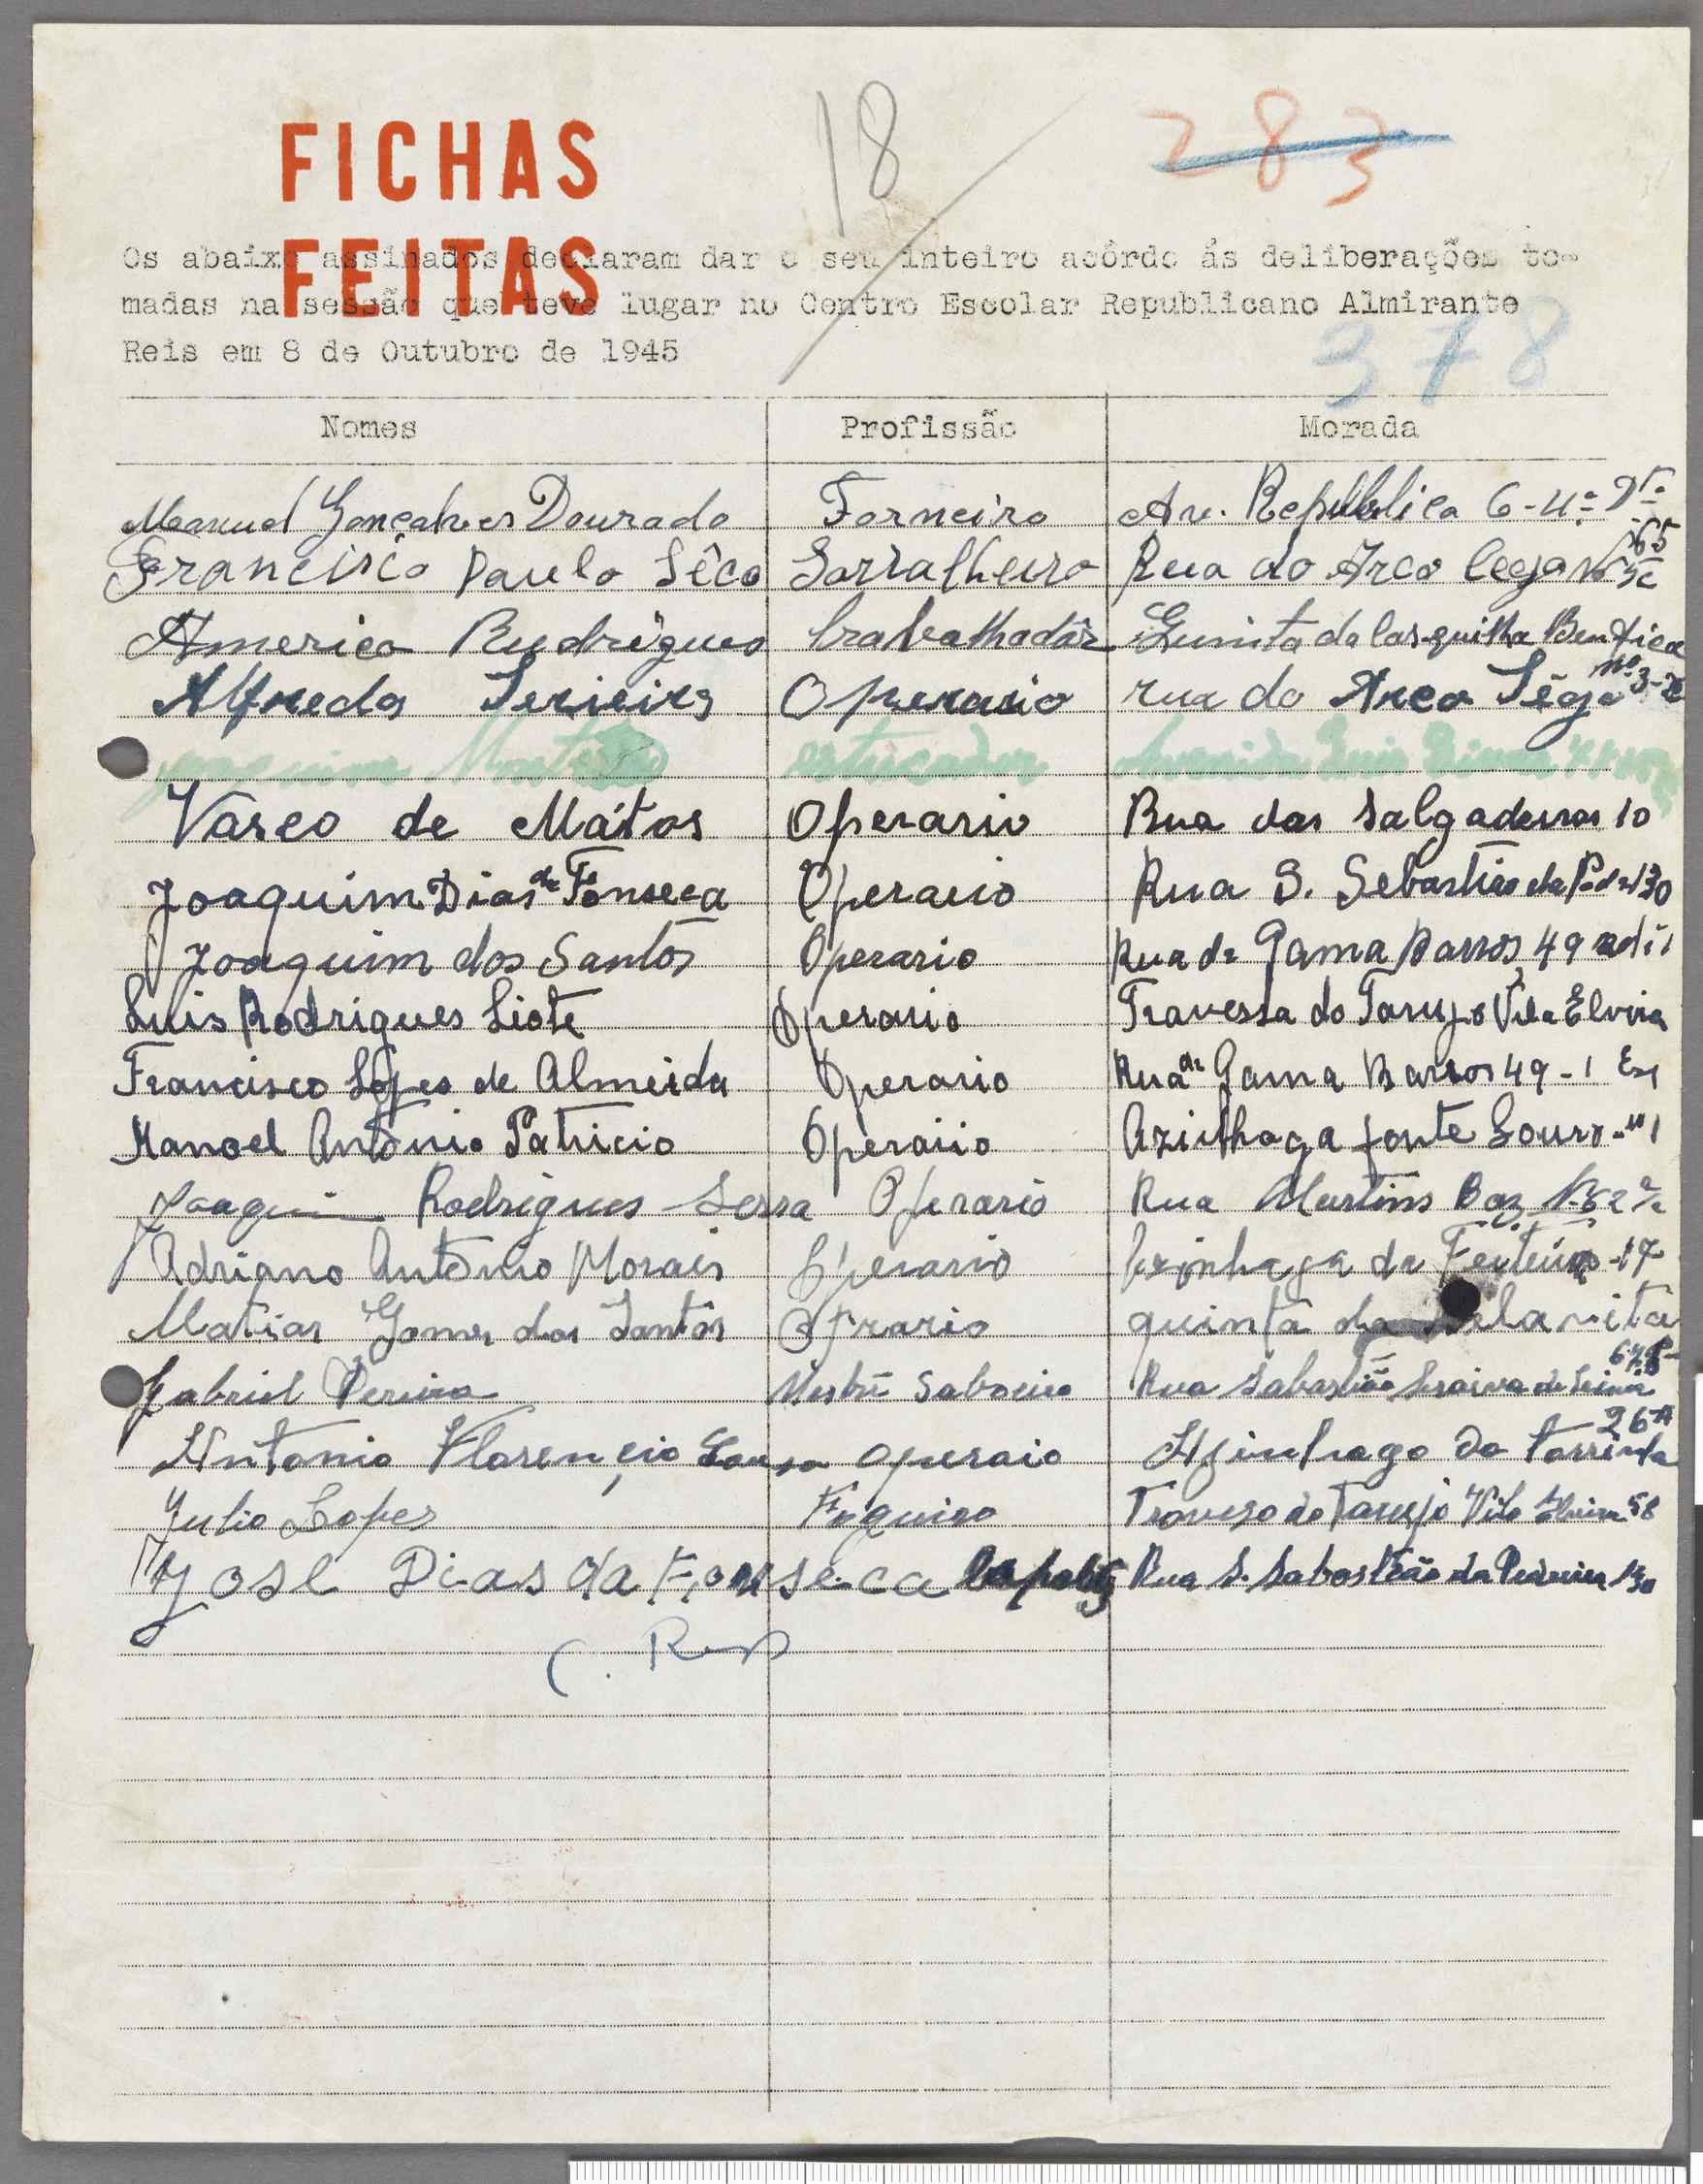 18
283
FICHAS
FEITAS
Os abaixo assinados declaram dar o seu inteiro acôrdo ás deliberações to-
madas na sessão que teve lugar no Centro Escolar Republicano Almirante
Reis em 8 de Outubro de 1945
378
Nomes Profissão Morada
Manuel Gonçalves Dourado Forneiro Av. Republica 6-4º Dtº
Francisco Paulo Sêco Sarralheiro Rua do Arco Cego Nº 65
America Rudrigues trabalhadôr Quinta da Casquilha Bemfica
Alfredo Operario rua do Arco Sêgo nº 3-2
Joaquim Monteiro estucador Avenida
Vasco de Mátos Operario Rua das Salgadeiras 10
Joaquim Dias da Fonseca Operario Rua S. Sebastião da Pedrª 130
Joaquim dos Santos Operario Rua da Gama Barros, 49
Luis Rodrigues Liote Operario Travessa do Tarujo Vila Elvira
Francisco Lopes de Almeida Operario Rua de Gama Barros 49-1 Eq
Manoel António Patricio Operario Azinhaga fonte Louro-nº 1
Joaquim Rodrigues Serra Operario Rua Martins
Adriano António Morais Operario Azinhaga da Feiteira-17
Matias Gomes dos Santos Oprario quinta da
Gabriel Pereira Mestre Saboeiro Rua Sabastião Saraiva de Lima
Antonio Florençio Sousa operaio Azinhaga da Torrinha 26A
Julio Lopes Fogueiro Travesa do Tarujo Vila Elvira 58
José Dias da Fonseca Rua S. Sabastião da Pedreira 130
C. Reis